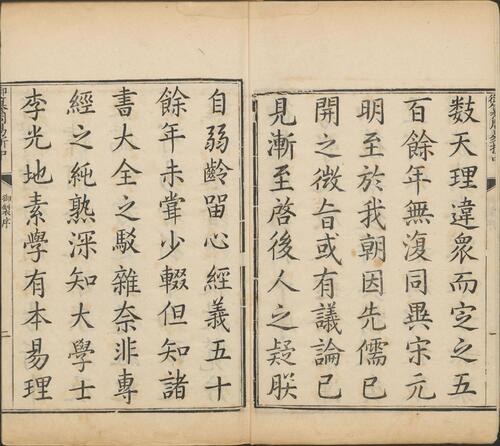 數天理違衆而㝎之五
百餘年無復同異宋元
明至於我朝因先儒已
開之微㫖或有議論已
見漸至啓後人之疑朕
一
自弱齡留心經義五十
餘年未甞少輟但知諸
書大全之駁雜奈非專
經之純熟深知大學士
李光地素學有本易理
御製序
二